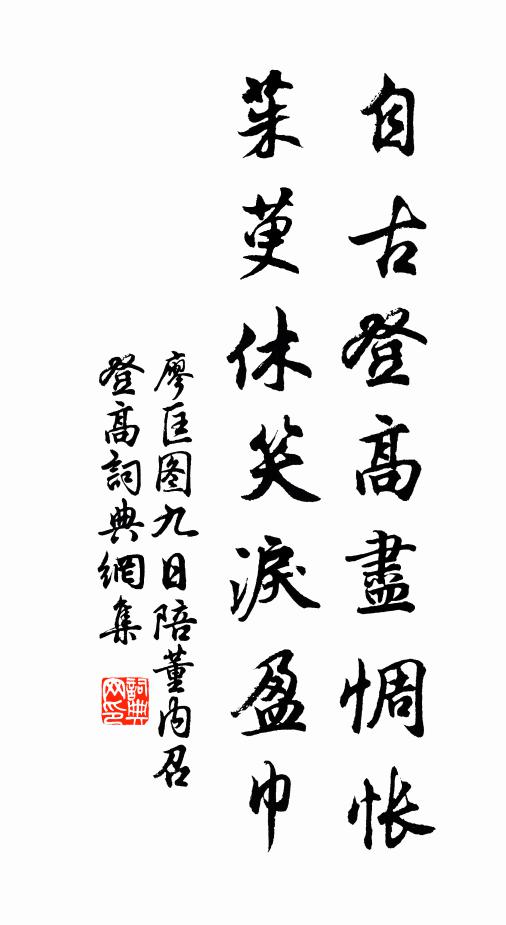 自古登高盡惆怅
茱萸休笑淚盈巾
廖匡图九日陪董内召
登高詞典網集
詞典网印